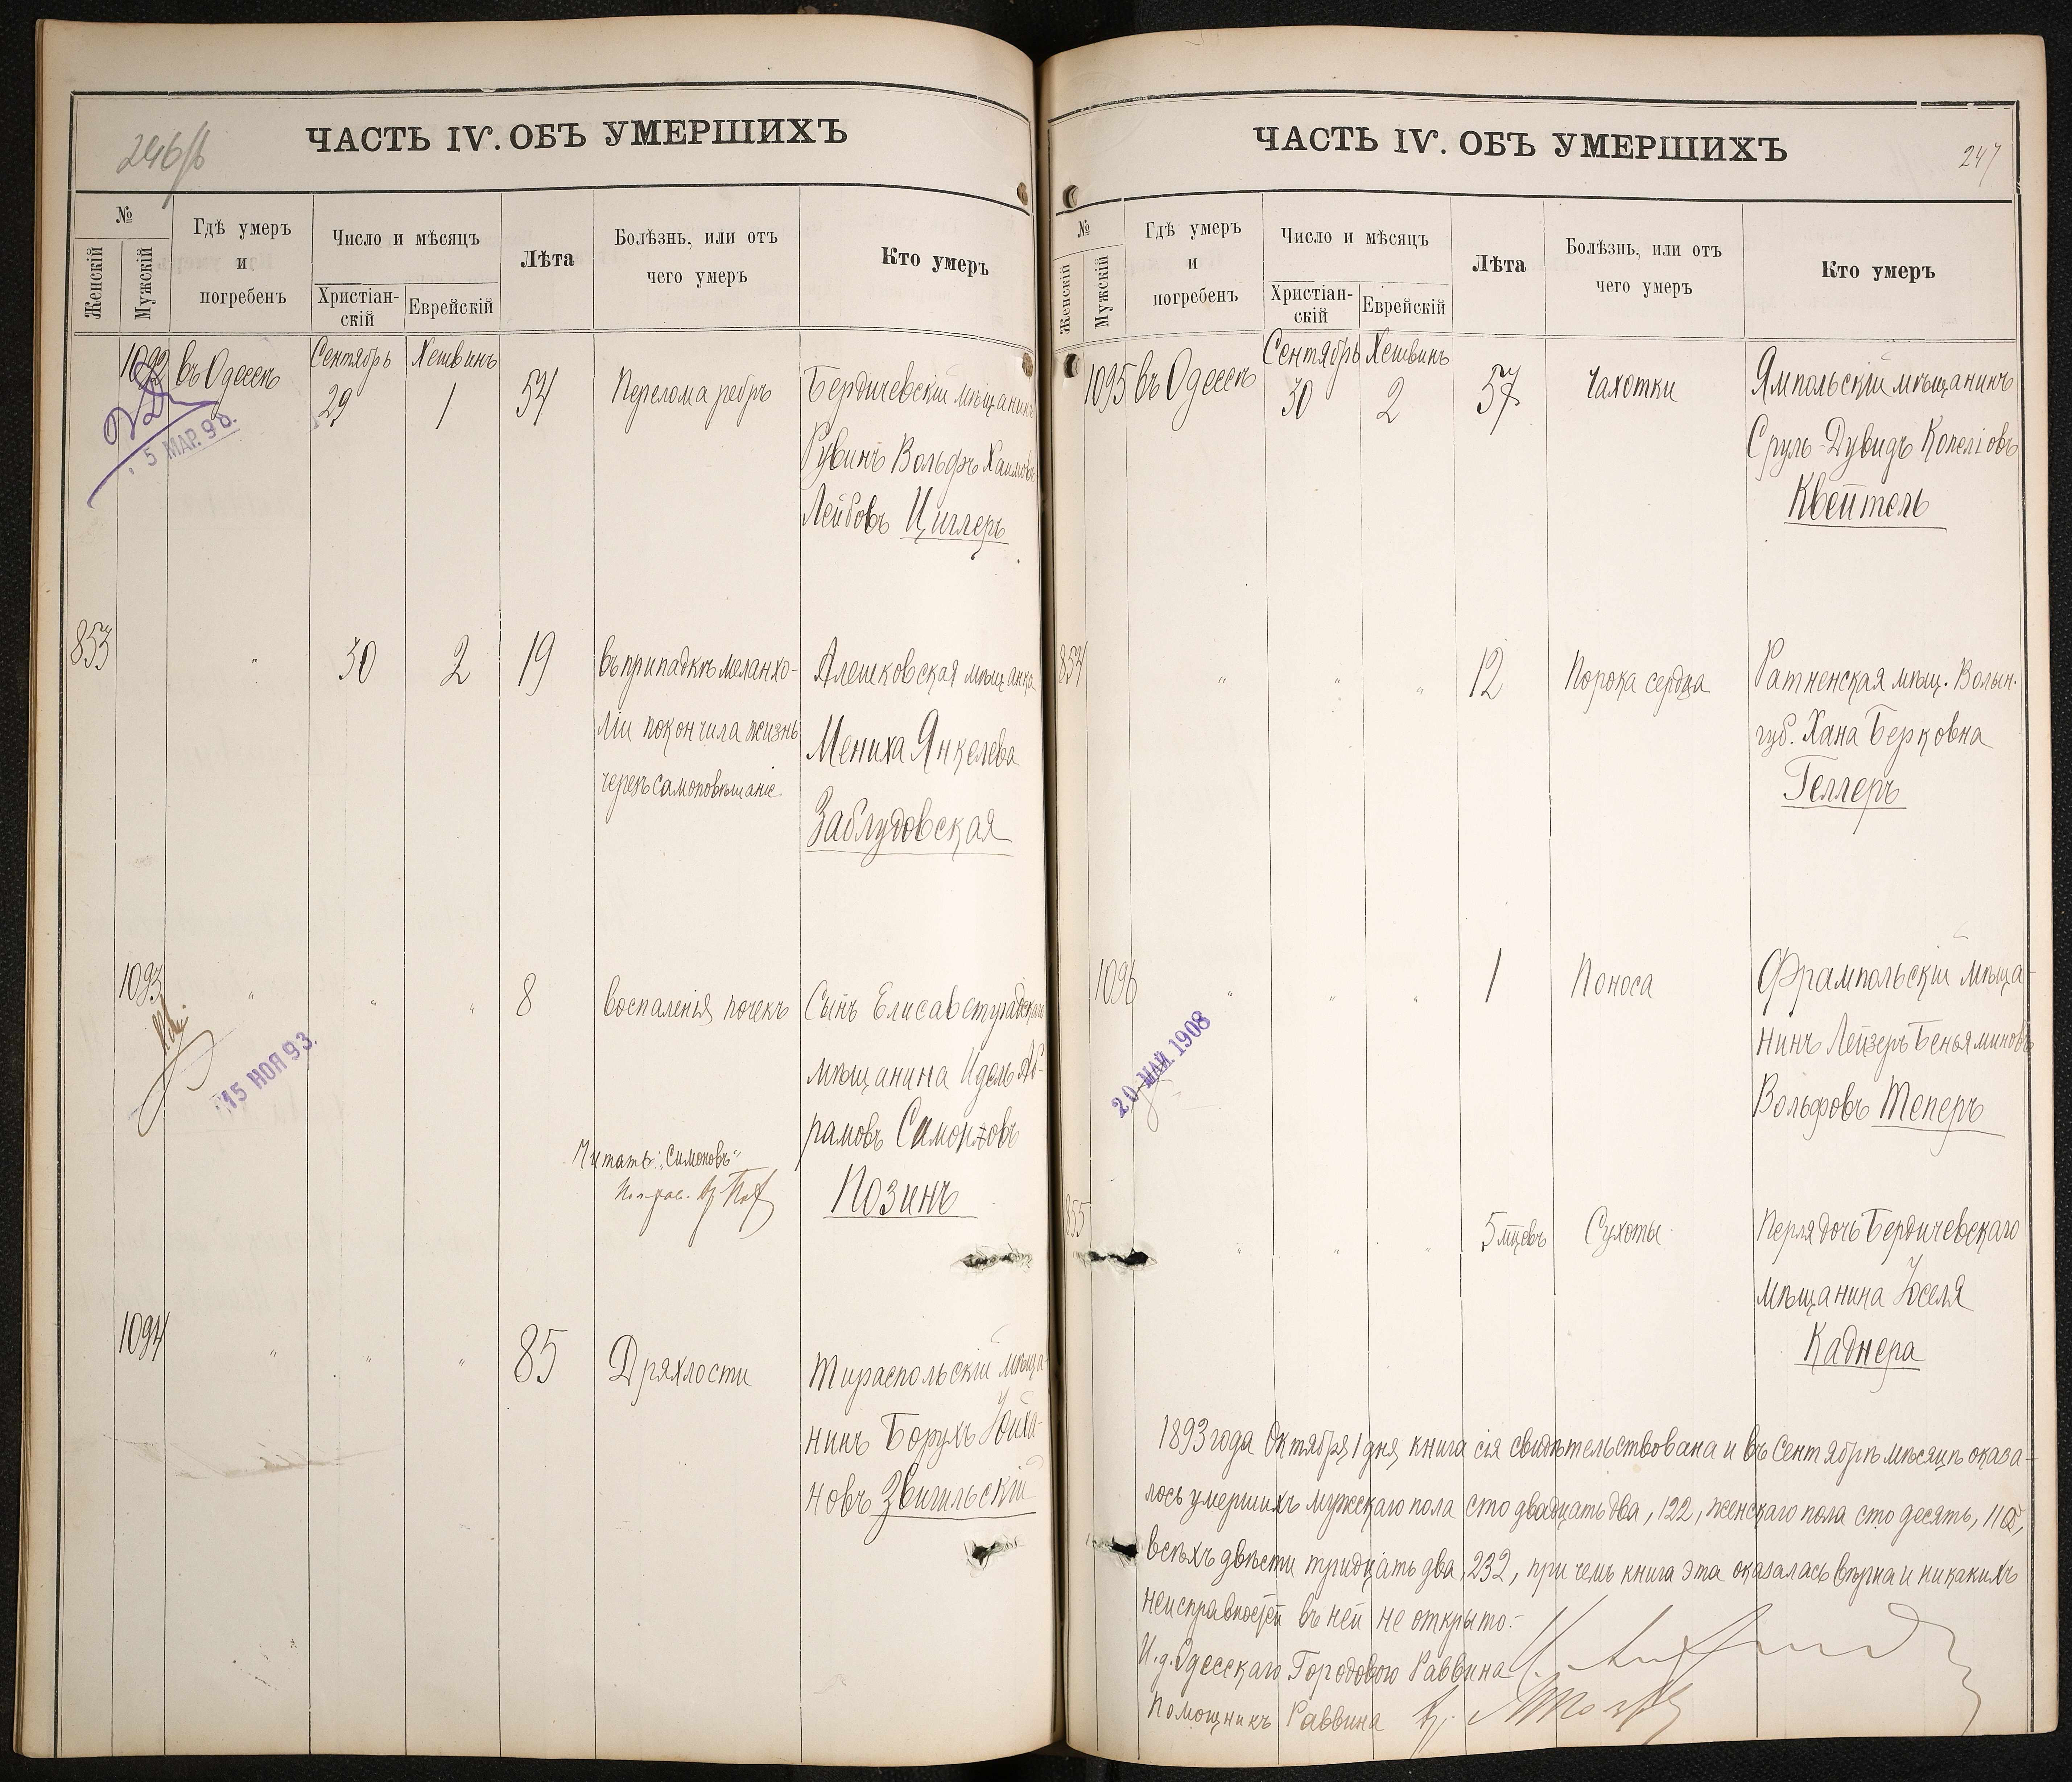 246/б
ЧАСТЬ IV. ОБЪ УМЕРШИХЪ
№
Женскій
Мужскій
Гдѣ умеръ
и
погребенъ
Число и мѣсяцъ
Христіан-
скій
Еврейскій
Лѣта
Болѣзнь, или отъ
чего умеръ
Кто умеръ
1092 въ Одессѣ Сентябрь 29 Хешвинъ 1 54 Перелома ребръ Бердичевскій мѣщанинъ
Рувинъ Вольфъ Хаимовъ
Лейбовъ Циглеръ
5 МАР. 98.
853 " 30 2 19 въ припадкѣ меланхо- Алешковская мѣщанка
ліи покончила жизнь Мениха Янкелева
черезъ самоповѣшаніе Заблудовская
1093 " " " 8 Воспаленія почекъ Сынъ Елисаветградскаго
мѣщанина Идель Аб-
рамовъ Симоновъ
Читать: „Симоновъ"
Позинъ
15 НОЯ 93.
1094 " " " 85 Дряхлости Тираспольскій мѣща-
нинъ Борухъ Юйхи-
новъ Звигильскій
ЧАСТЬ IV. ОБЪ УМЕРШИХЪ
247
№
Женскій
Мужскій
Гдѣ умеръ
и
погребенъ
Число и мѣсяцъ
Христіан-
скій
Еврейскій
Лѣта
Болѣзнь, или отъ
чего умеръ
Кто умеръ
1095 въ Одессѣ Сентябрь 30 Хешвинъ 2 57 Чахотки Ямпольскій мѣщанинъ
Сруль-Дувидъ Копеліовъ
Квейтель
854 " " " 12 Порока сердца Ратненская мѣщ. Волын.
губ. Хана Берковна
Геллеръ
1096 " " " 1 Поноса Фрампольскій мѣща-
нинъ Лейзеръ Беньяминовъ
Вольфовъ Теперъ
20 МАЙ. 1908
855 " " " 5 мцевъ Сухоты Перля дочь Бердичевскаго
мѣщанина Іоселя
Каднера
1893 года Октября 1 дня книга сія свидѣтельствована и въ Сентябрѣ мѣсяцѣ оказа-
лось умершихъ мужскаго пола сто двадцать два, 122, женскаго пола сто десять, 110,
всѣхъ двѣсти тридцать два, 232, при чемъ книга эта оказалась вѣрна и никакихъ
неисправностей въ ней не открыто.
И. д. Одесскаго Городового Раввина
Помощникъ Раввина